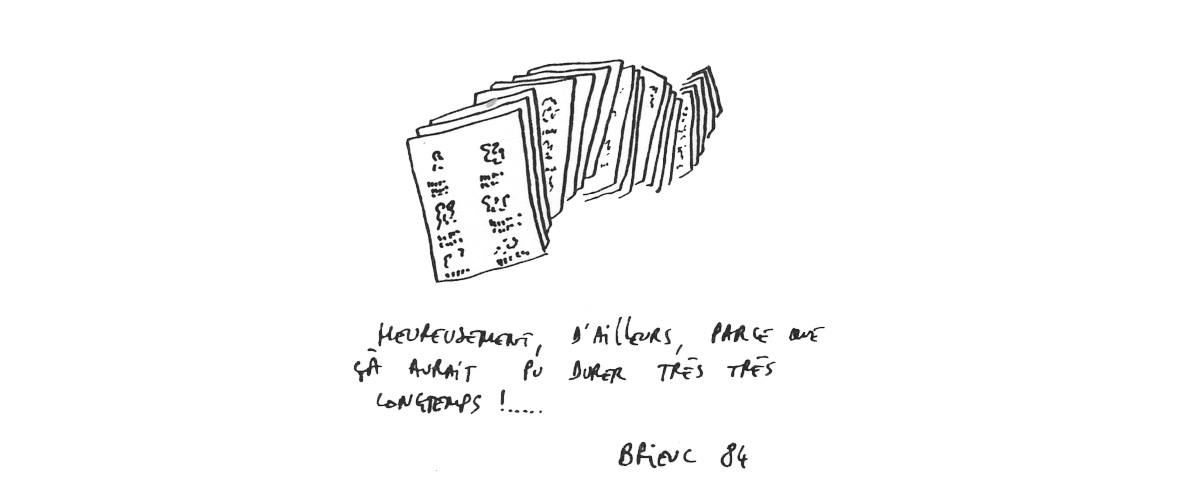 HEUREUSEMENT, D'AILLEURS, PARCE QUE
ÇÀ AURAIT PU DURER TRÈS TRÈS
LONGTEMPS !.....
BRIEUC 84